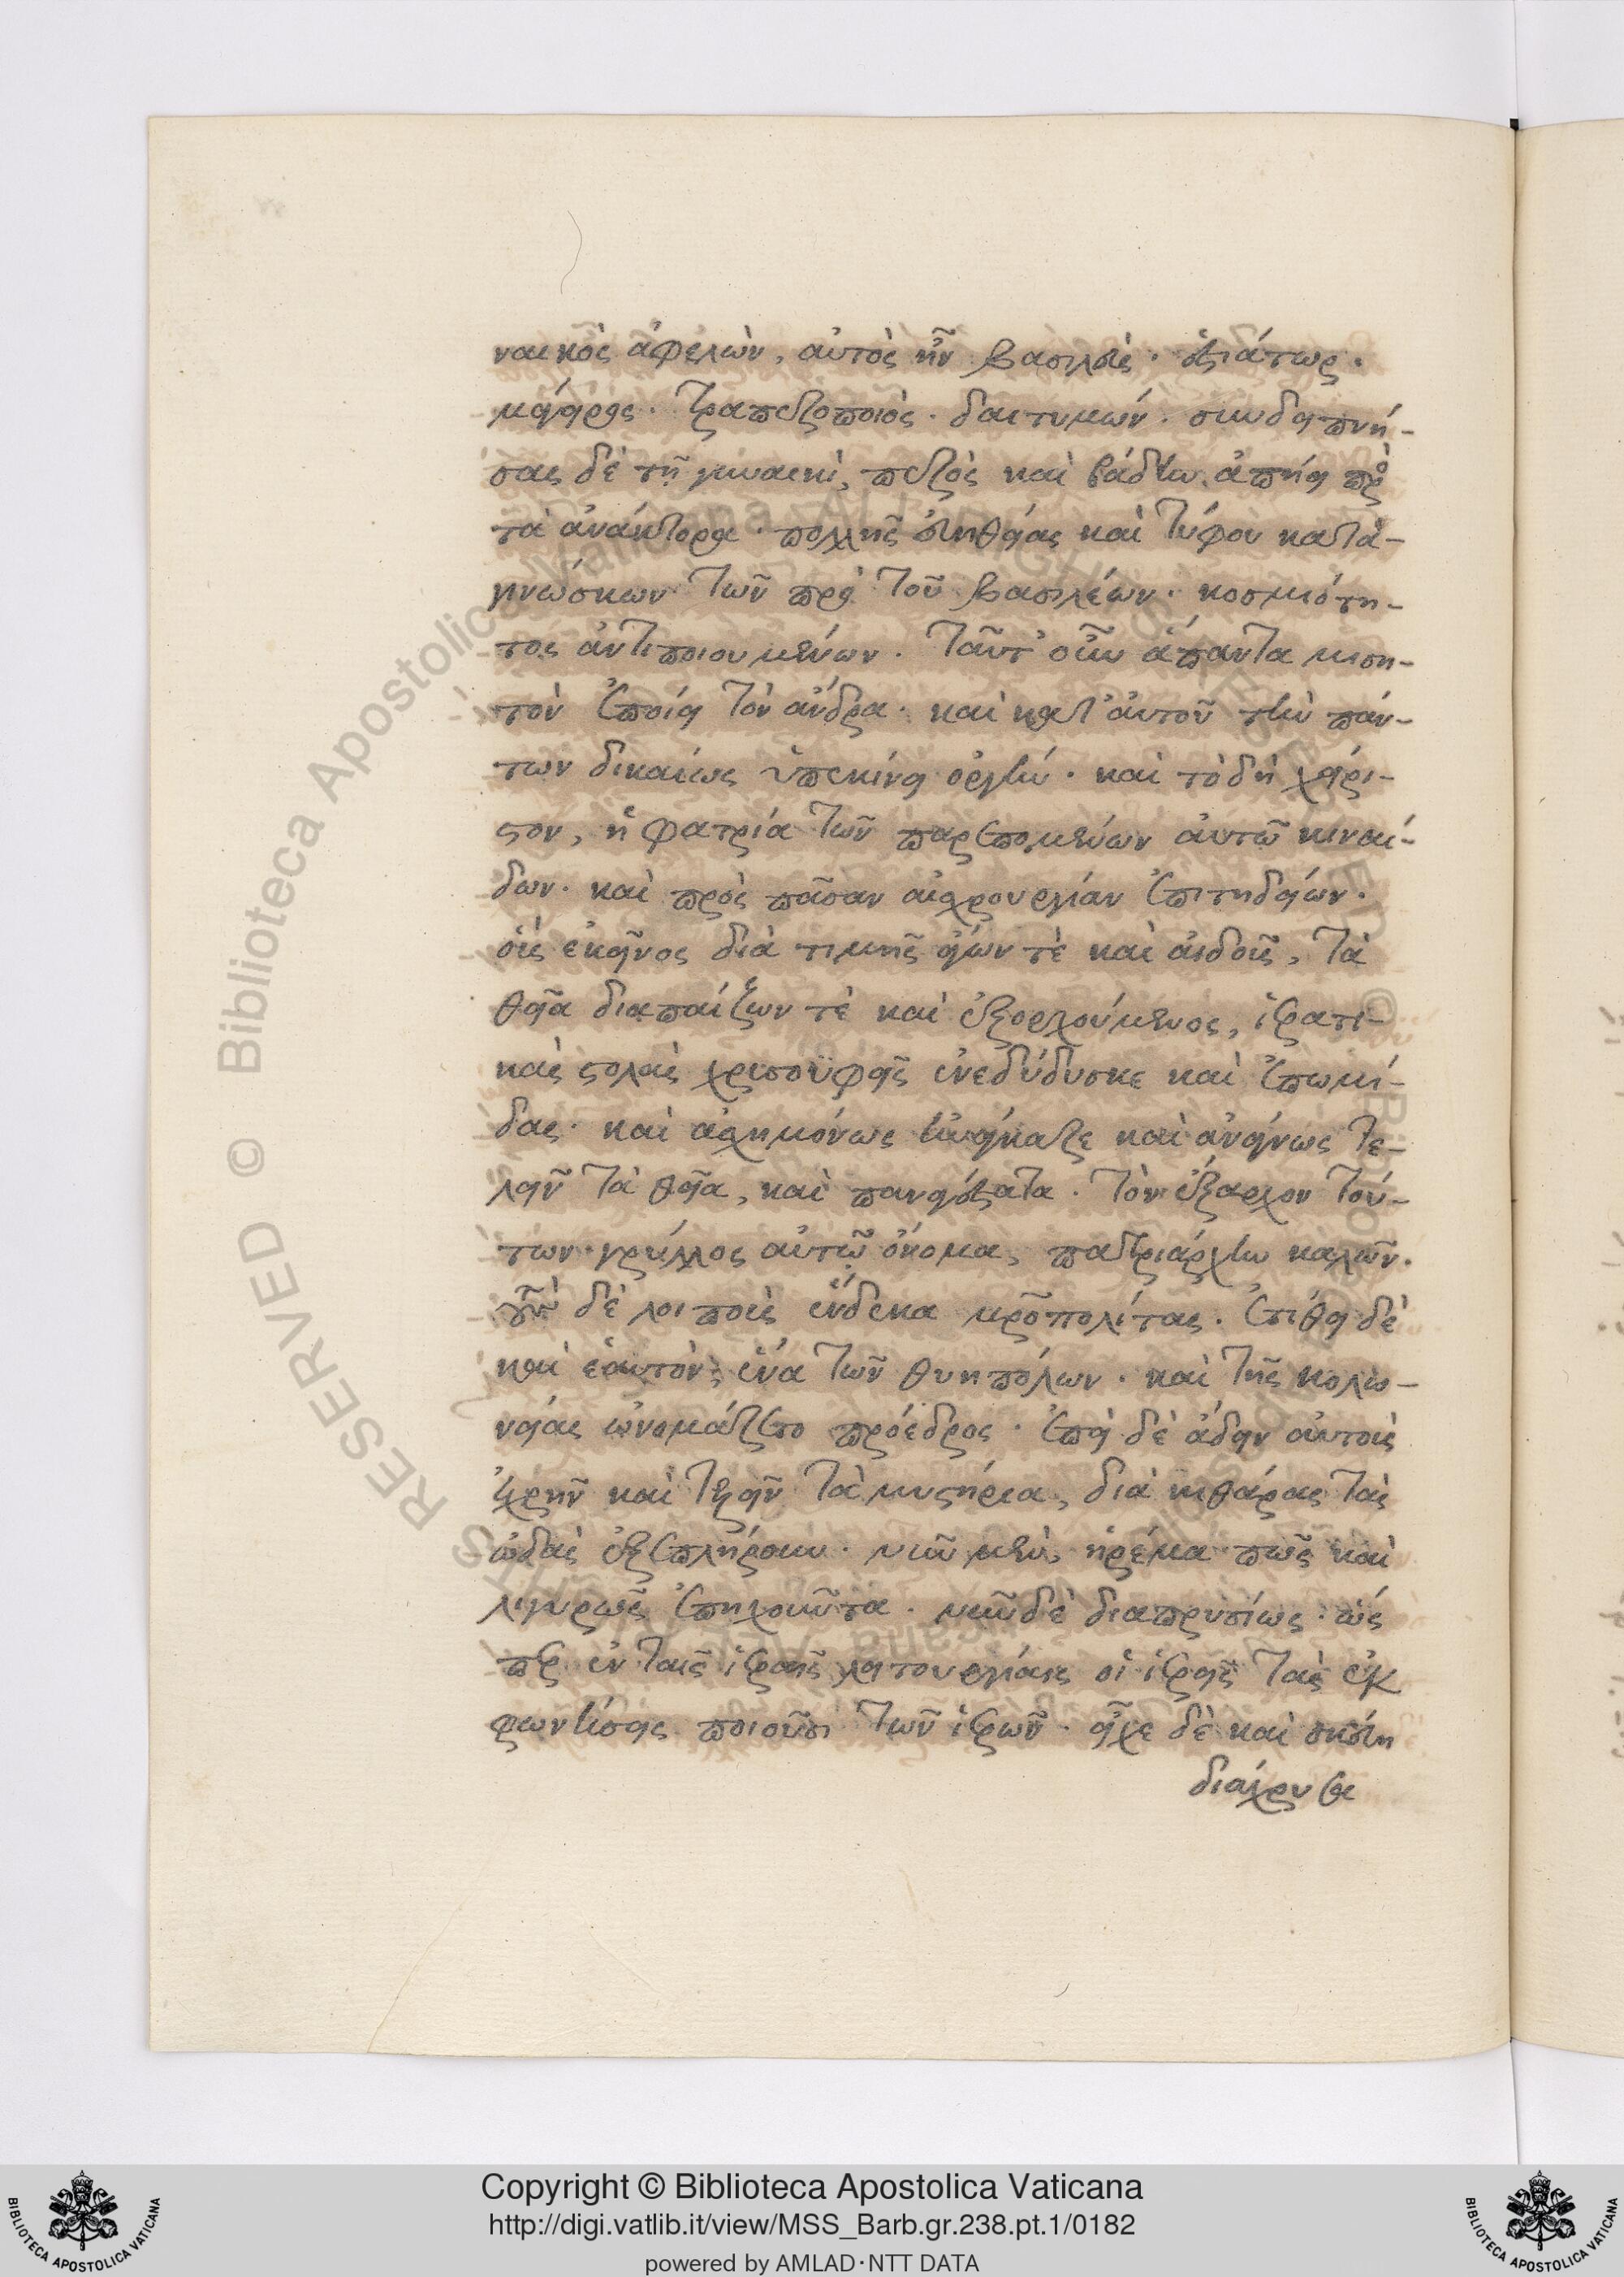 ναικὸς ἀφελὼν, αὐτὸς ἦν βασιλεὺς. ἑστιάτωρ.
μάγειρος. τραπεζοποιὸς. δαιτυμών. συνδειπνή-
σας δὲ τῇ γυναικὶ, πεζὸς καὶ βάδην ἀπῄει πρὸς
τὰ ἀνάκτορα. πολλῆς εὐηθείας καὶ τύφου κατα-
γινώσκων τῶν πρὸ τοῦ βασιλέων. κοσμιότη-
τος ἀντιποιουμένων. ταῦτ' οὖν ἅπαντα μιση-
τὸν ἐποίει τὸν ἄνδρα. καὶ κατ' αὐτοῦ τὴν πάν-
των δικαίως ὑπεκίνει ὀργήν. καὶ τὸ δὴ χείρι-
στον, ἡ φατρία τῶν παρεπομένων αὐτῷ κιναί-
δων. καὶ πρὸς πᾶσαν αἰσχρουργίαν ἐπιτηδείων.
οὓς ἐκεῖνος διὰ τιμῆς ἄγων τὲ καὶ αἰδοῦς, τὰ
θεῖα διαπαίζων τὲ καὶ ἐξορχούμενος, ἱερατι-
κὰς στολὰς χρυσουφεῖς ἐνεδύδυσκε καὶ ἐπωμί-
δας. καὶ ἀσχημόνως ἠνάγκαζε καὶ ἀναγνως τε-
λεῖν τὰ θεῖα, καὶ παναγέστατα. τὸν ἔξαρχον τού-
των γρύλλος αὐτῷ ὄνομα, πατριάρχην καλῶν.
τοὺς δὲ λοιποὺς ἕνδεκα μητροπολίτας. ἐτίθει δὲ
καὶ ἑαυτὸν, ἕνα τῶν θυηπόλων. καὶ τῆς κολω-
νείας ὠνομάζετο πρόεδρος. ἐπεὶ δὲ ἄδειν αὐτοὺς
ἐχρῆν καὶ τελεῖν τὰ μυστήρια, διὰ κιθάρας τὰς
ὠδὰς ἐξεπλήρουν. νῦν μὲν, ἠρέμα πῶς καὶ
λιγυρῶς ἐπηχοῦντα. νῦν δὲ διαπρυσίως. ὥς
περ ἐν ταῖς ἱεραῖς λειτουργίαις οἱ ἱερεῖς τὰς ἐκ
φωνήσεις ποιοῦσι τῶν ἱερῶν. εἶχε δὲ καὶ σκεύη
διάχρυσα